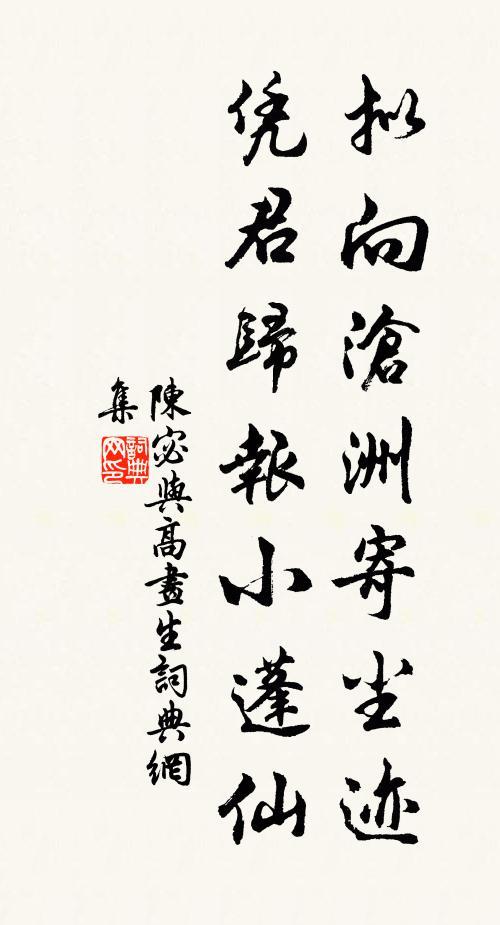 拟向滄洲寄尘迹
凭君歸報小蓬仙
陳宓與高畫生詞典網
集
詞典
网印